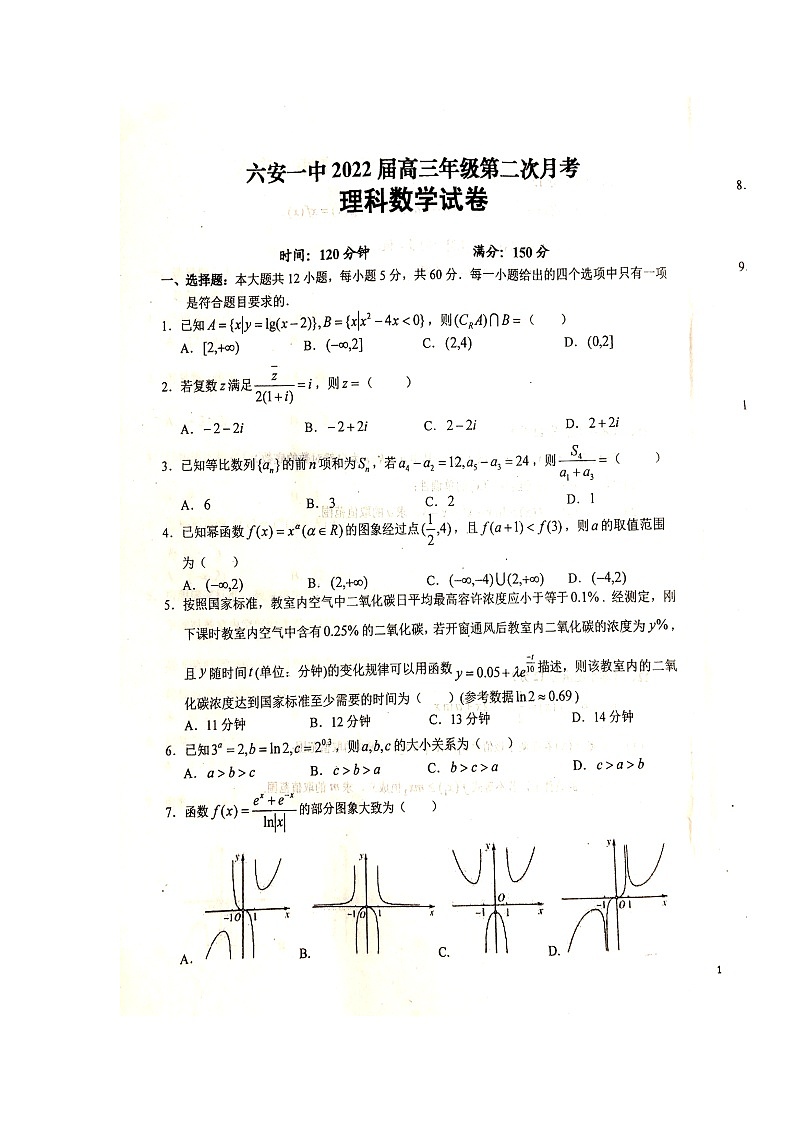 六安一中 2022 届高三年级第二次月考
理科数学试卷
时间：120 分钟 满分：150 分
一、选择题：本大题共 12 小题，每小题 5 分，共 60 分．每一小题给出的四个选项中只有一项
是符合题目要求的．
1．已知 A = {x|y = lg(x − 2)}, B = {x|x² − 4x < 0}，则 (C_R A)⋂B =（ ）
A．[2,+∞) B．(−∞,2] C．(2,4) D．(0,2]
2．若复数 z 满足 z̄/(2(1+i)) = i，则 z =（ ）
A．−2−2i B．−2+2i C．2−2i D．2+2i
3．已知等比数列{aₙ}的前 n 项和为 Sₙ，若 a₄ − a₂ = 12, a₅ − a₃ = 24，则 S₄/(a₁ + a₃) =（ ）
A．6 B．3 C．2 D．1
4．已知幂函数 f(x) = x^α (α ∈ R) 的图象经过点 (1/2,4)，且 f(a+1) < f(3)，则 a 的取值范围
为（ ）
A．(−∞,2) B．(2,+∞) C．(−∞,−4)⋃(2,+∞) D．(−4,2)
5．按照国家标准，教室内空气中二氧化碳日平均最高容许浓度应小于等于 0.1%．经测定，刚
下课时教室内空气中含有 0.25% 的二氧化碳，若开窗通风后教室内二氧化碳的浓度为 y%，
且 y 随时间 t (单位：分钟)的变化规律可以用函数 y = 0.05 + λe^(−t/10) 描述，则该教室内的二氧
化碳浓度达到国家标准至少需要的时间为（ ）(参考数据 ln 2 ≈ 0.69 )
A．11 分钟 B．12 分钟 C．13 分钟 D．14 分钟
6．已知 3^a = 2, b = ln 2, c = 2^0.3，则 a,b,c 的大小关系为（ ）
A．a > b > c B．c > b > a C．b > c > a D．c > a > b
7．函数 f(x) = (e^x + e^(−x))/ln|x| 的部分图象大致为（ ）
y y y y
−1 O 1 x −1 O 1 x −1 O 1 x −1 O 1 x
A． B． C． D．
1
8.
9.